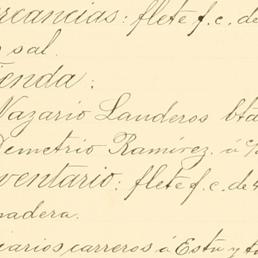 rcancias: flete f. c. de
sal.
ienda:
Nazario Landeros bta
Demetrio Ramírez. á
ventario: flete f. c. de 4
madera.
iarios carreros á Estn y t